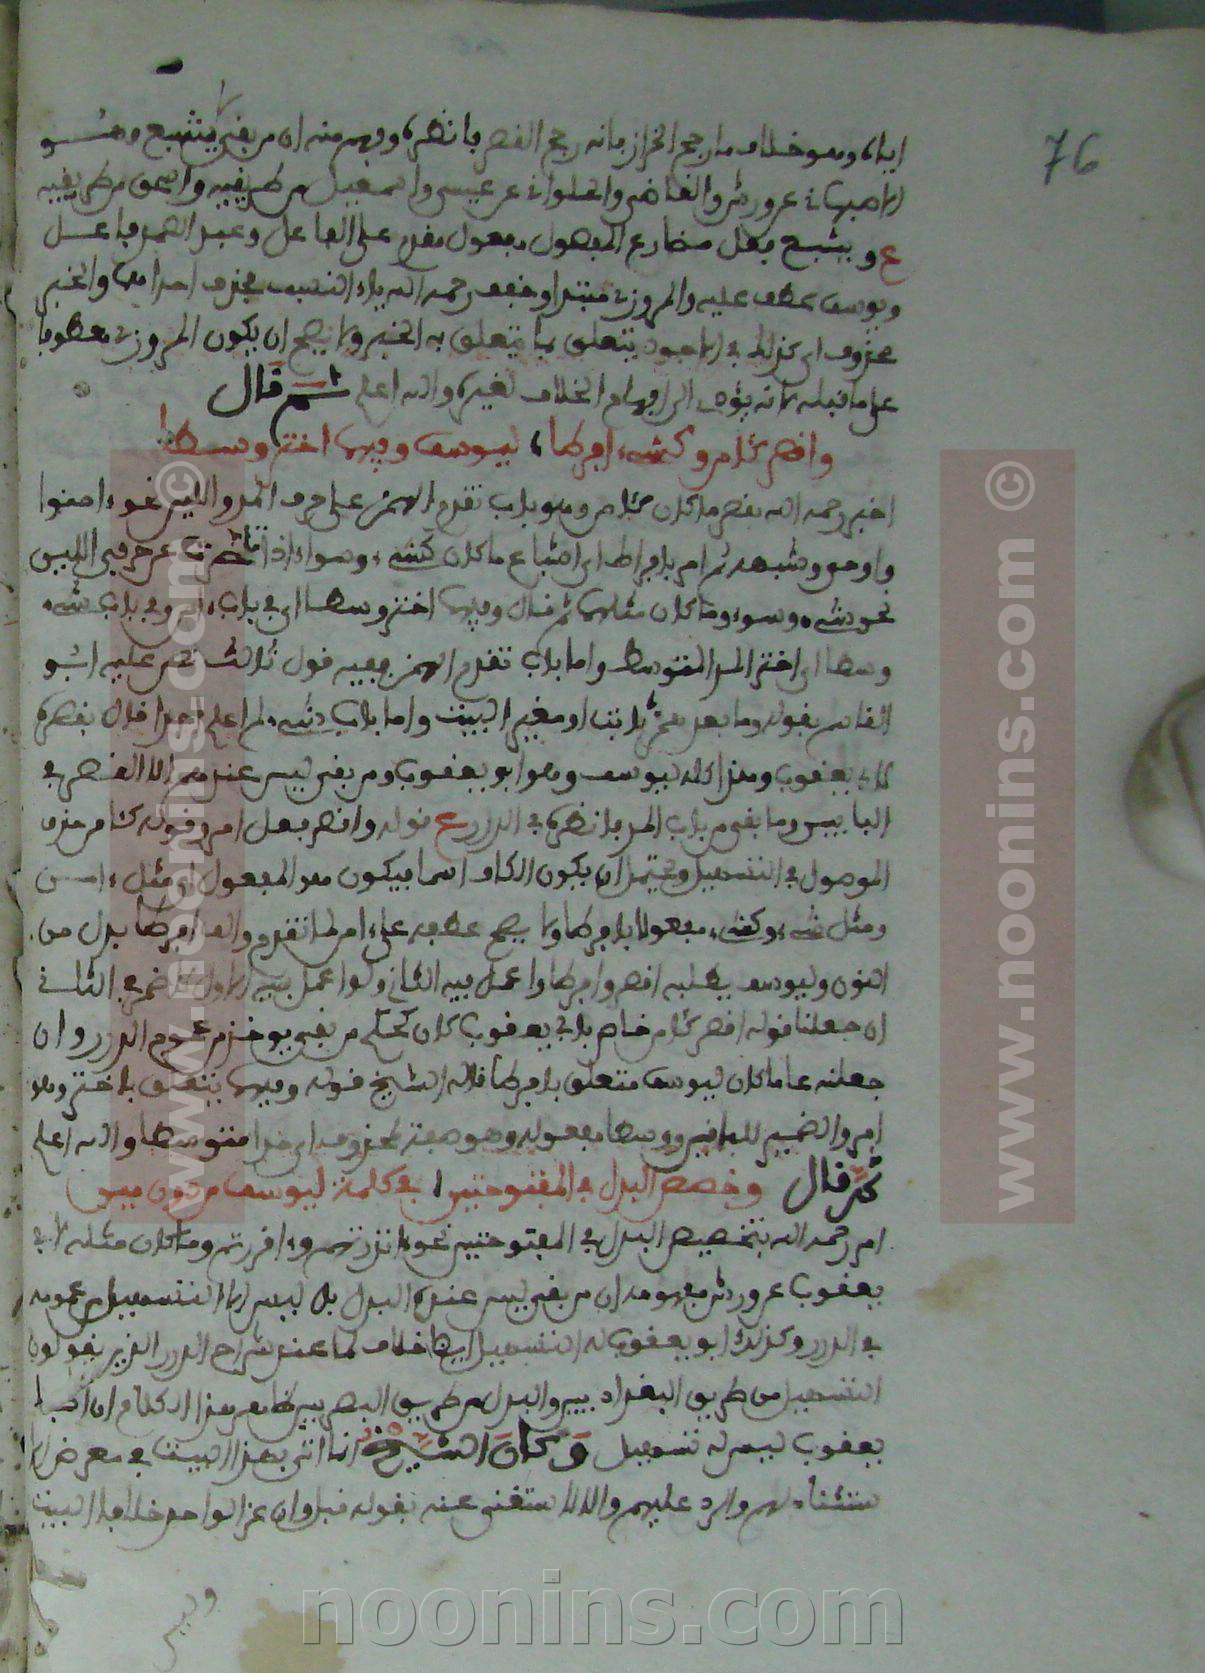 76
اياه وهو خلاف ما رجح الخراز فانه رجح القصر فانظره ويفهم منه ان من بقي يشبع وهو
الاصبهاني عن ورش والقاضي والحلواني عن عيسى واسمعيل من طريقيه واسحق من طريقيه
ع ويشبع فعل مضارع المفعول مفعول مقدم على الفاعل وعبد الصمد فاعل
ويوسف عطف عليه والمروزي مبتدا وخفف رحمه الله ياء النسب بحذف احداهما والخبر
محذوف اي كذلك في الاجود يتعلق بما يتعلق به الخبر ولا يصح ان يكون المروزي معطوفا
على ما قبله لانه يؤدي الى ايهام الخلاف لغيره والله اعلم ثم قال
واقصر كئامن وكشيء افرطا ليوسف وفيهما اختر وسطا
اخبر رحمه الله بقصر ما كان كئامن وهو باب تقدم الهمز على حرف المد واللين نحو ءامنوا
واوحي وشبهه ثم امر بافراط اي اشباع ما كان كشيء وسواء اذا تاخرت عن حرفي اللين
نحو شيء وسوء وما كان مثلهما ثم قال وفيهما اختر وسطا اي في باب ءامن وفي باب شيء
وسطا اي اختر المد المتوسط واما باب تقدم الهمز ففيه قول ثالث نص عليه ابو
القاسم بقوله وما بعد همز ثابت او مغير البيت واما باب شيء لم اعلم احدا قال بقصره
لابي يعقوب وهذا كله ليوسف وهو ابو يعقوب ومن بقي ليس عندهم الا القصر في
البابين وما بقي من باب المد فانظره في الدرر ع قوله واقصر فعل امر وقوله كئامن حذف
الموصول في التسهيل ويحتمل ان يكون الكاف اسما فيكون هو المفعول اي مثل ءامن
ومثل شيء وكشيء مفعول بافرطا ولا يصح عطفه على ءامن لما تقدم والف افرطا بدل من
النون وليوسف يطلبه اقصر وافرطا واعمل فيه الثاني ولو اعمل فيه الاول لاضمر في الثاني
ان جعلنا قوله اقصر كئامن خاص بابي يعقوب كان حكم من بقي يوخذ من عموم الدرر وان
جعلته عاما كان ليوسف متعلق بافرطا قاله الشيخ قوله وفيهما يتعلق باختر وهو
امر والضمير للبابين ووسطا مفعوله وهو صفة لمحذوف اي مدا متوسطا والله اعلم
ثم قال وخصص البدل في المفتوحتين في كلمة ليوسف من دون مين
امر رحمه الله بتخصيص البدل في المفتوحتين نحو ءانذرتهم وءاقررتم وما كان مثله لابي
يعقوب عن ورش مفهومه ان من بقي ليس عنده البدل بل ليس الا التسهيل من عمومه
في الدرر وكذلك ابو يعقوب له التسهيل ايضا خلاف لما عند شراح الدرر الذين يقولون
التسهيل من طريق البغداديين والبدل من طريق المصريين فظاهر هذا الكلام ان ابا
يعقوب ليس له تسهيل وكان الشيخ انما اتى بهذا البيت في معرض الا
ستثناء لهم والرد عليهم والا لاستغنى عنه بقوله قبل وان عزا الواحد خلافا البيت
وليس
www.noonins.com ©
www.noonins.com ©
noonins.com